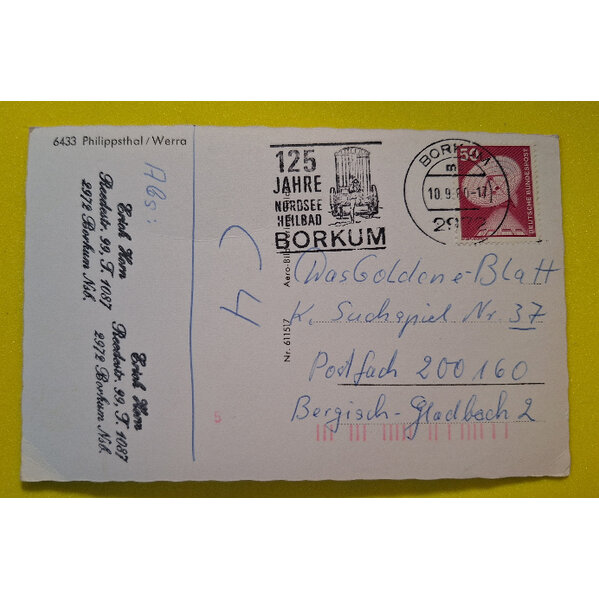 6433 Philippsthal/Werra
Abs:
Erich Horn
Reedestr. 99, T. 1087
2972 Borkum Nsb.
Erich Horn
Reedestr. 99, T. 1087
2972 Borkum Nsb.
125
JAHRE
NORDSEE
HEILBAD
BORKUM
BORKUM
10.9.80-17
50
DEUTSCHE BUNDESPOST
Nr. 611517
Das Goldene-Blatt
K. Suchspiel Nr. 37
Postfach 200160
Bergisch-Gladbach 2
5